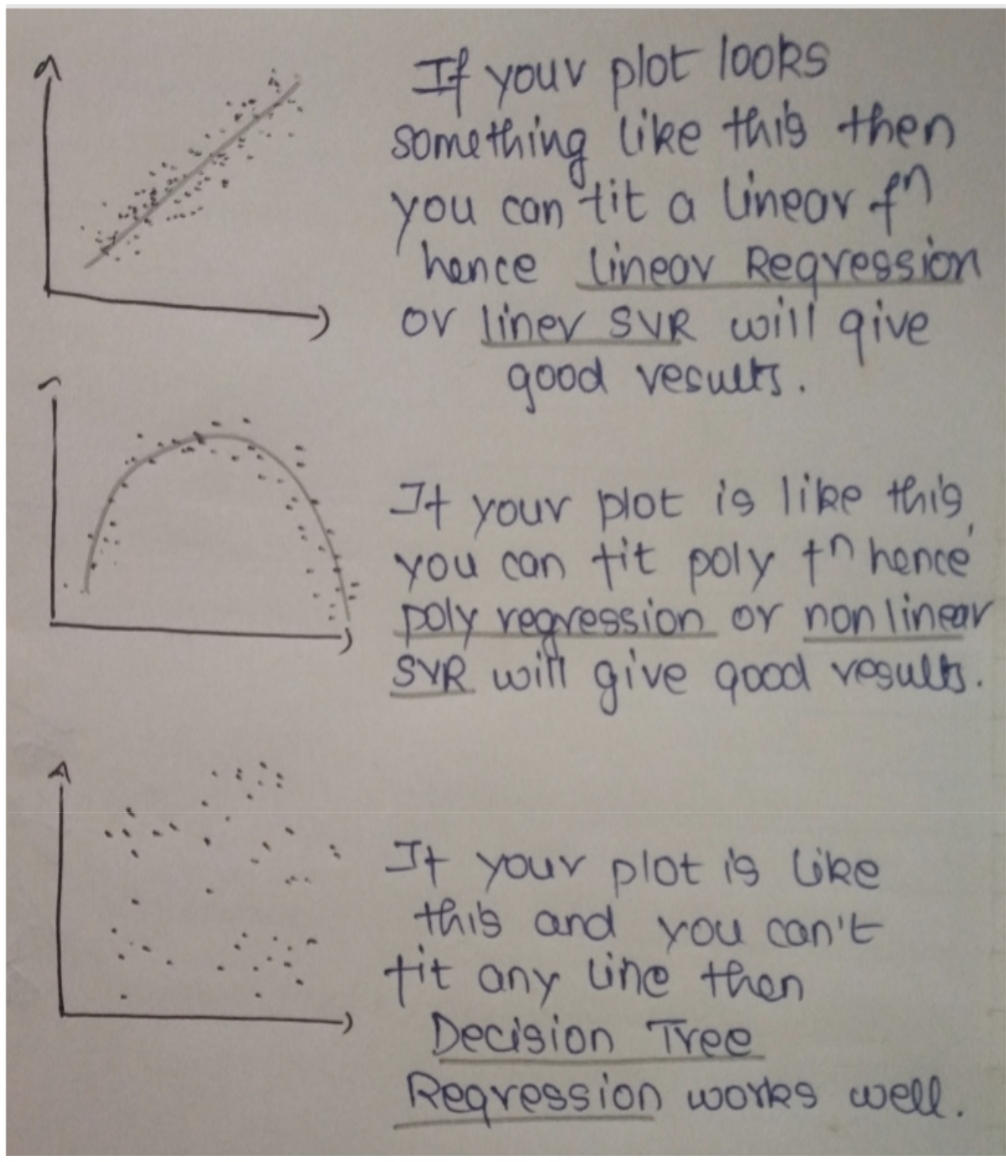 If your plot looks
something like this then
you can fit a linear fⁿ
hence linear Regression
or liner SVR will give
good results.
If your plot is like this,
you can fit poly fⁿ hence
poly regression or non linear
SVR will give good results.
If your plot is like
this and you can't
fit any line then
Decision Tree
Regression works well.